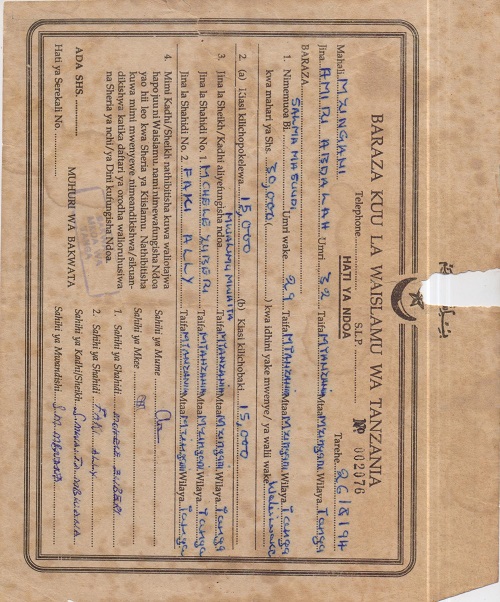 BARAZA KUU LA WAISLAMU WA TANZANIA
S.L.P. ..........
Telephone ..........
HATI YA NDOA
№ 002076
Mahali MZINGANI Tarehe 26/8/94
Jina AMIRI ABDALAH Umri 32 Taifa MTANZANIA Mtaa Mzingani Wilaya Tanga
BARAZA
1. Nimemuoa Bi. SALMA MASUUDI Umri wake 29 Taifa MTANZANIA Mtaa Mzingani Wilaya Tanga
kwa mahari ya Shs. 30,000 (..........) kwa idhini yake mwenye/ya walii wake
2 (a) Kiasi kilichopokelewa 15,000 (b) Kiasi kilichobaki 15,000
3. Jina la Sheikh/Kadhi aliyefungisha ndoa Taifa MTANZANIA Mtaa Mzingani Wilaya Tanga
Jina la Shahidi No. 1. MCHELE ZUBERI Taifa MTANZANIA Mtaa Mzingani Wilaya Tanga
Jina la Shahidi No. 2. FAKI ALLY Taifa MTANZANIA Mtaa Mzingani Wilaya Tanga
4. Mimi Kadhi/Sheikh nathibitisha kuwa waliotajwa
hapo juu ni Waislamu, nami nimewafungisha Ndoa
yao hii leo kwa Sheria ya Kiislamu. Nathibitisha
kuwa mimi mwenyewe nimeandikishwa/sikuan-
dikishwa katika daftari ya orodha walioruhusiwa
na Sheria ya nchi/ya Dini kufungisha Ndoa.
Sahihi ya Mume
Sahihi ya Mkee
1. Sahihi ya Shahidi MCHELE ZUBERI
2. Sahihi ya Shahidi FAKI ALLY
Sahihi ya Kadhi/Sheikh
Sahihi ya Mwandishi
MUHURI WA BAKWATA
ADA SHS. ..........
Hati ya Serekali No. ..........